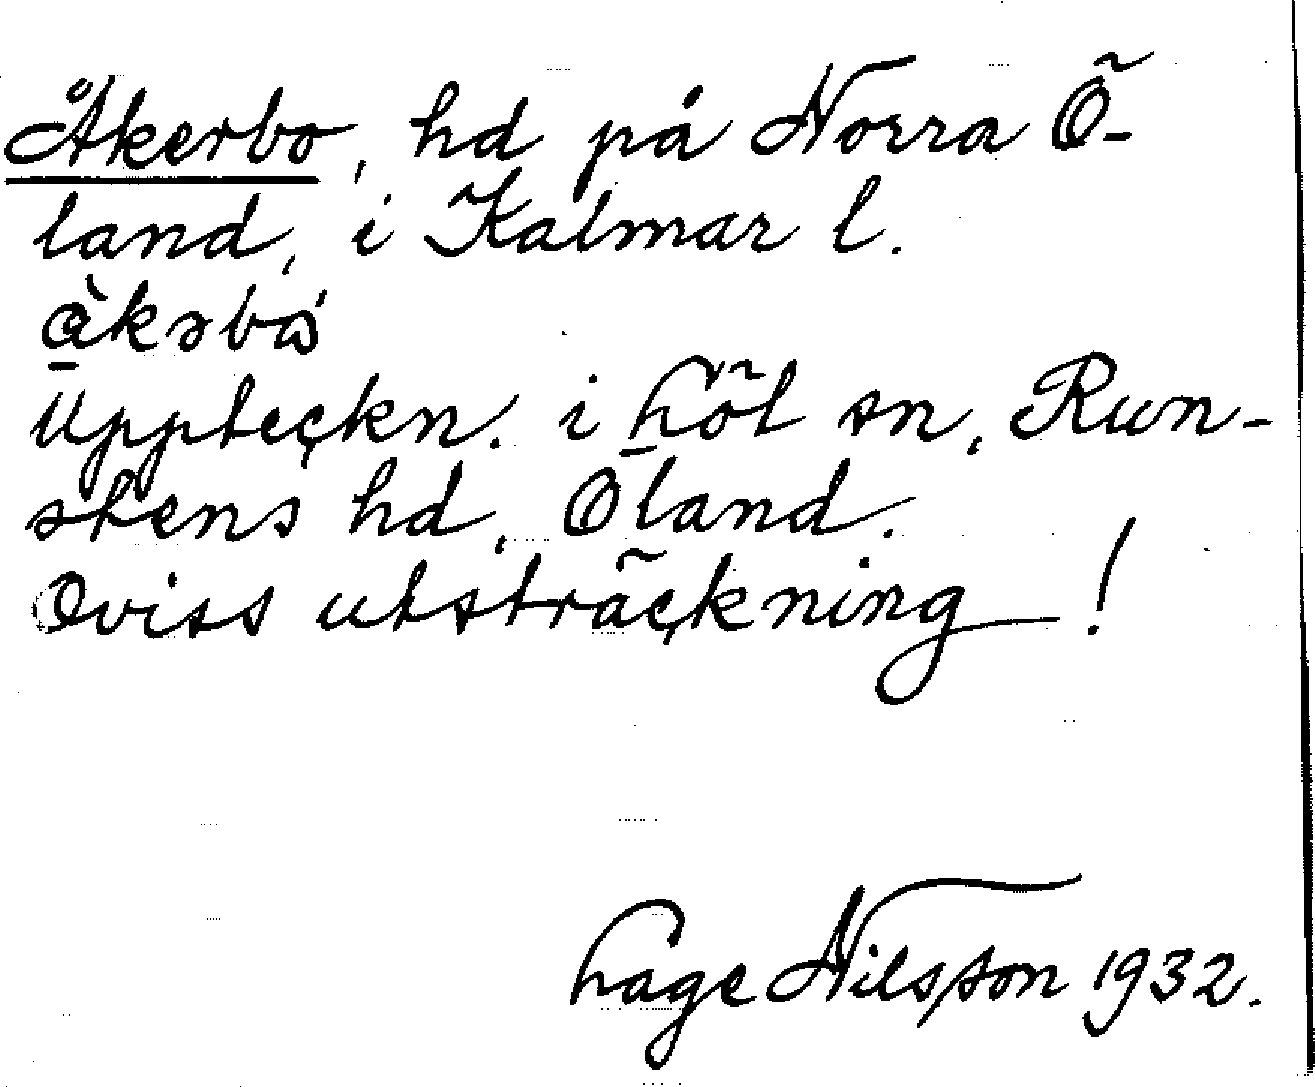 Åkerbo, hd på Norra Ö-
land, i Kalmar l.
Uppteckn. i Löt sn, Run-
stens hd, Öland.
Oviss utsträckning!
Lage Nilsson 1932.